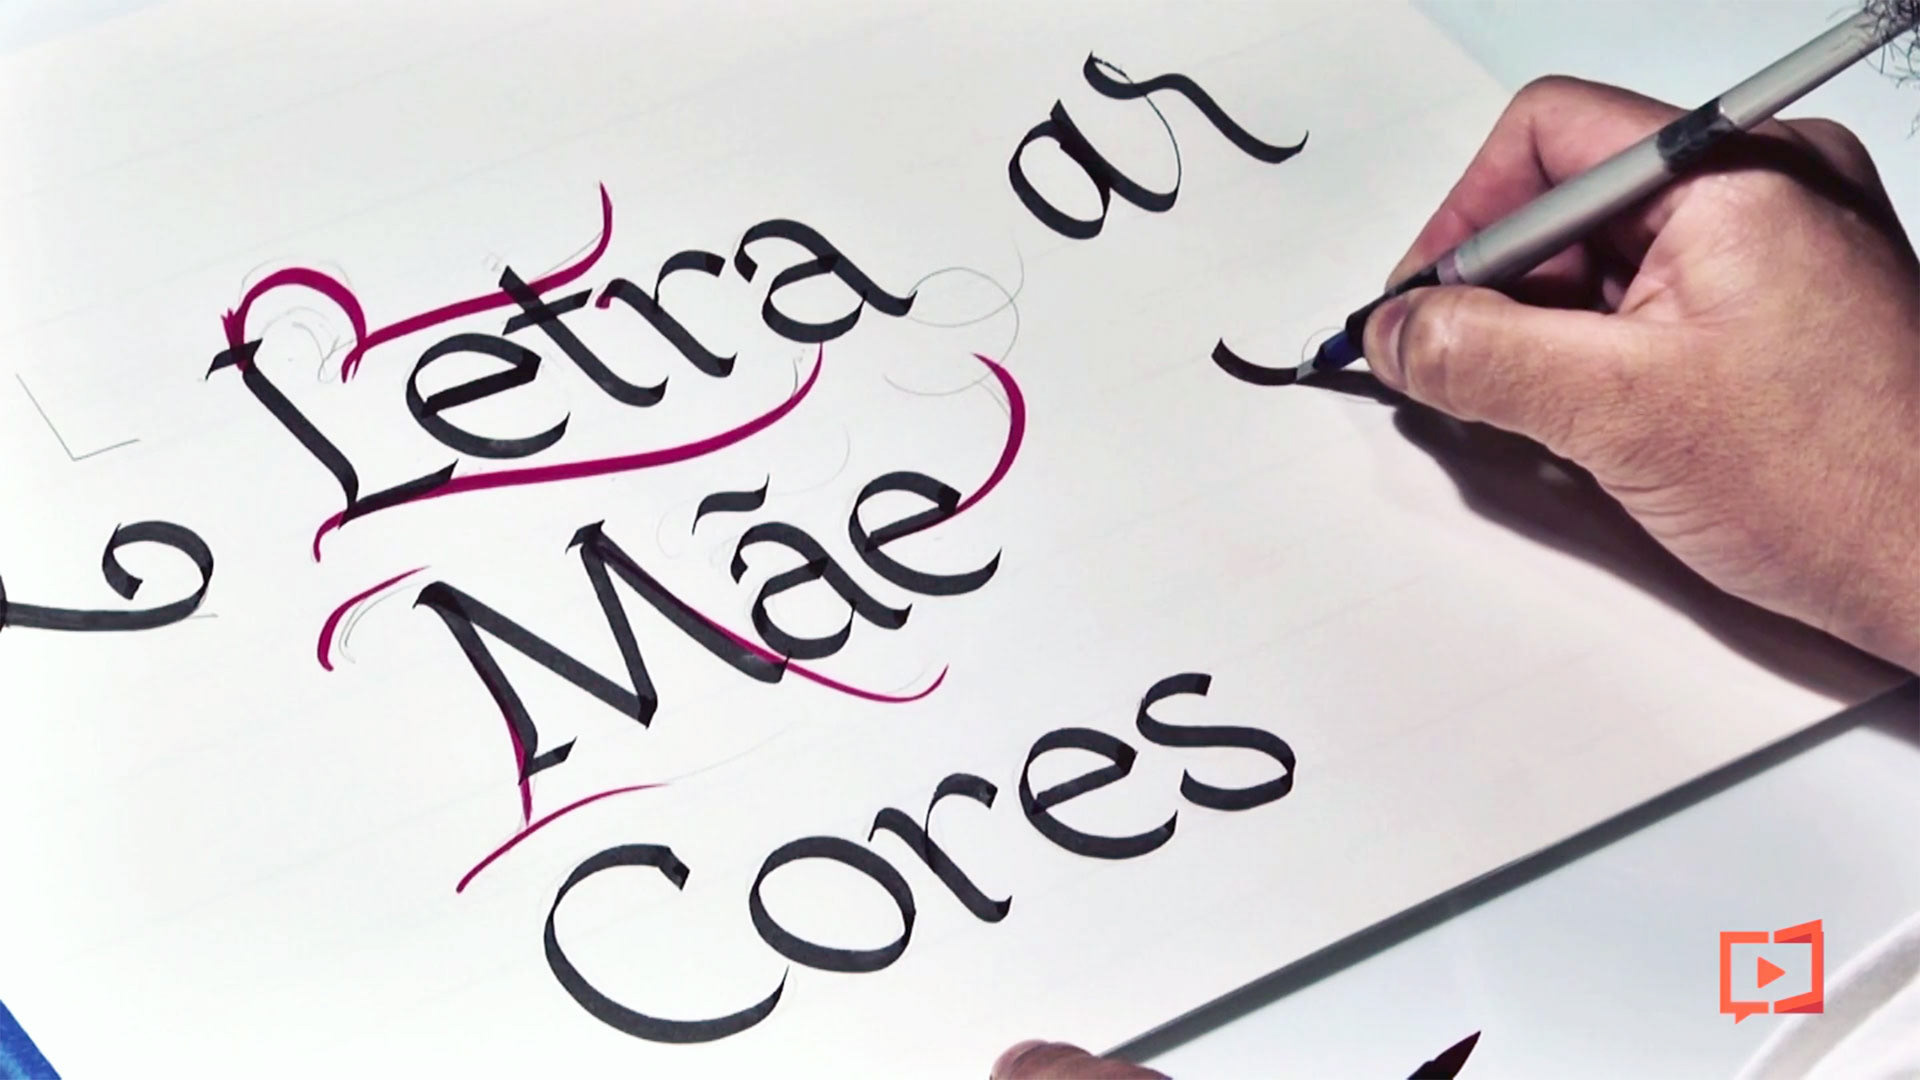 ar
Letra
Mãe
Cores
L